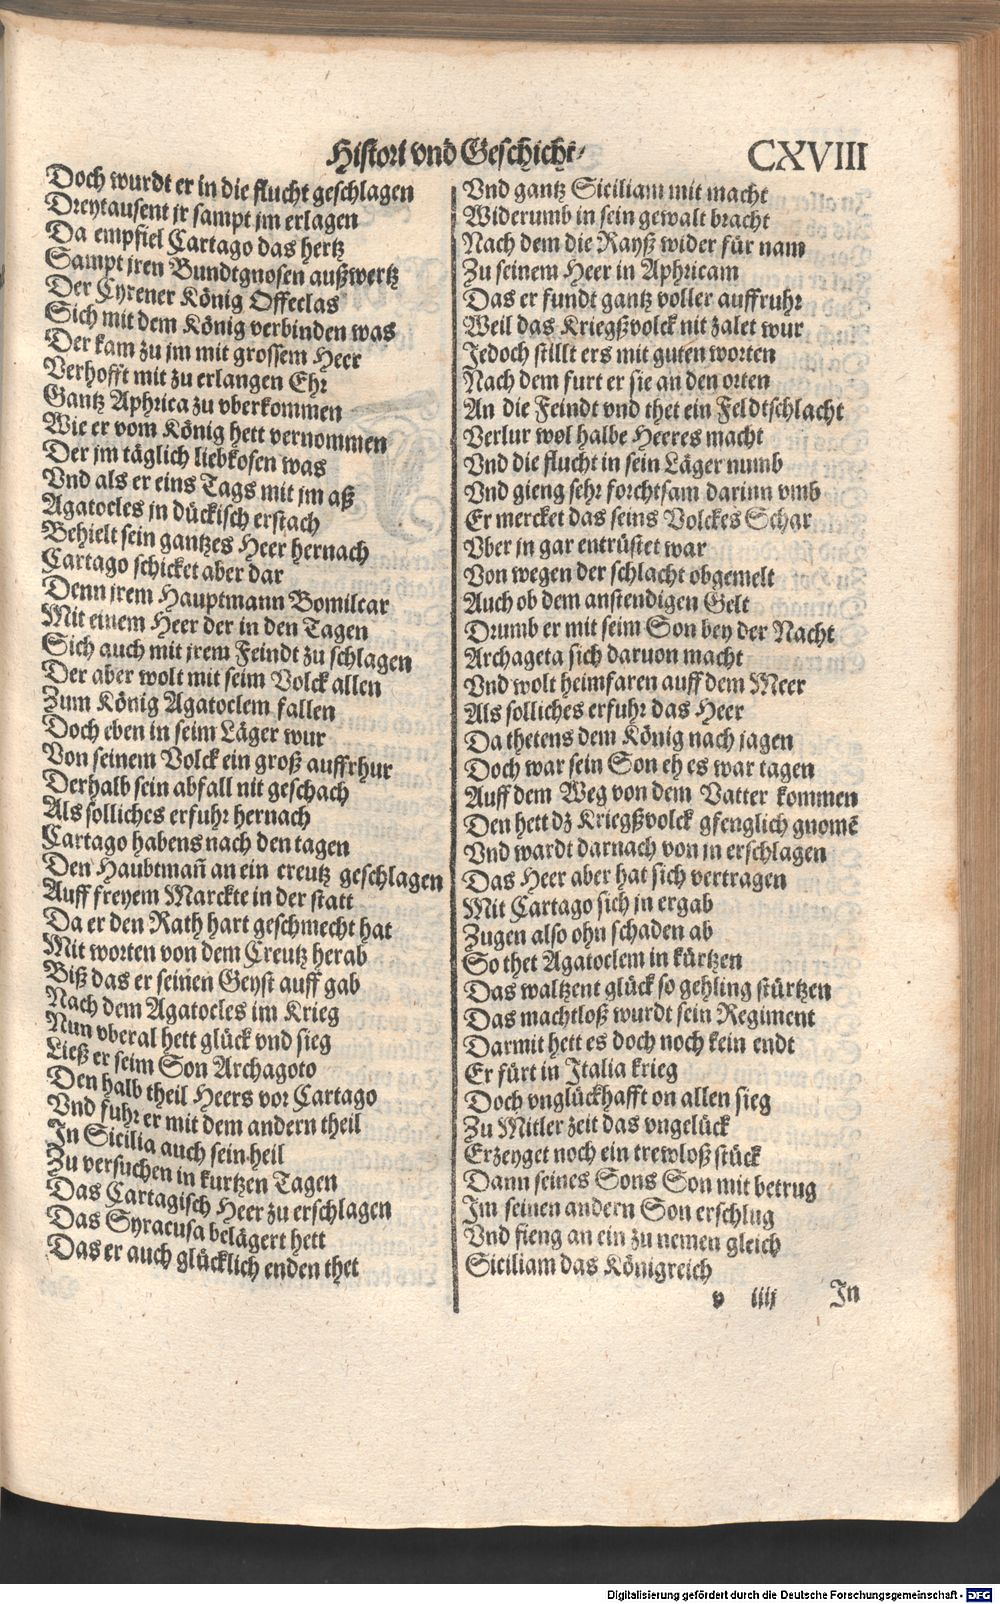 Histori vnd Geschicht/
CXVIII
Doch wurdt er in die flucht geschlagen
Dreytausent jr sampt jm erlagen
Da empfiel Cartago das hertz
Sampt jren Bundtgnosen außwertz
Der Cyrener König Offeclas
Sich mit dem König verbinden was
Der kam zu jm mit grossem Heer
Verhofft mit zu erlangen Ehr
Gantz Aphrica zu vberkommen
Wie er vom König hett vernommen
Der jm täglich liebkosen was
Vnd als er eins Tags mit jm aß
Agatocles jn dückisch erstach
Behielt sein gantzes Heer hernach
Cartago schicket aber dar
Denn jrem Hauptmann Bomilcar
Mit einem Heer der in den Tagen
Sich auch mit jrem Feindt zu schlagen
Der aber wolt mit seim Volck allen
Zum König Agatoclem fallen
Doch eben in seim Läger wur
Von seinem Volck ein groß auffrhur
Derhalb sein abfall nit geschach
Als solliches erfuhr hernach
Cartago habens nach den tagen
Den Haubtmañ an ein creutz geschlagen
Auff freyem Marckte in der statt
Da er den Rath hart geschmecht hat
Mit worten von dem Creutz herab
Biß das er seinen Geyst auff gab
Nach dem Agatocles im Krieg
Nun vberal hett glück vnd sieg
Ließ er seim Son Archagoto
Den halb theil Heers vor Cartago
Vnd fuhr er mit dem andern theil
In Sicilia auch sein heil
Zu versuchen in kurtzen Tagen
Das Cartagisch Heer zu erschlagen
Das Syracusa belägert hett
Das er auch glücklich enden thet
Vnd gantz Siciliam mit macht
Widerumb in sein gewalt bracht
Nach dem die Rayß wider für nam
Zu seinem Heer in Aphricam
Das er fundt gantz voller auffruhr
Weil das Kriegßvolck nit zalet wur
Jedoch stillt ers mit guten worten
Nach dem furt er sie an den orten
An die Feindt vnd thet ein Feldtschlacht
Verlur wol halbe Heeres macht
Vnd die flucht in sein Läger numb
Vnd gieng sehr forchtsam darinn vmb
Er mercket das seins Volckes Schar
Vber jn gar entrüstet war
Von wegen der schlacht obgemelt
Auch ob dem anstendigen Gelt
Drumb er mit seim Son bey der Nacht
Archageta sich daruon macht
Vnd wolt heimfaren auff dem Meer
Als solliches erfuhr das Heer
Da thetens dem König nach jagen
Doch war sein Son eh es war tagen
Auff dem Weg von dem Vatter kommen
Den hett dz Kriegßvolck gfenglich gnomē
Vnd wardt darnach von jn erschlagen
Das Heer aber hat sich vertragen
Mit Cartago sich jn ergab
Zugen also ohn schaden ab
So thet Agatoclem in kürtzen
Das waltzent glück so gehling stürtzen
Das machtloß wurdt sein Regiment
Darmit hett es doch noch kein endt
Er fürt in Italia krieg
Doch vnglückhafft on allen sieg
Zu Mitler zeit das vngelück
Erzeyget noch ein trewloß stück
Dann seines Sons Son mit betrug
Im seinen andern Son erschlug
Vnd fieng an ein zu nemen gleich
Siciliam das Königreich
v iiij
In
Digitalisierung gefördert durch die Deutsche Forschungsgemeinschaft - DFG